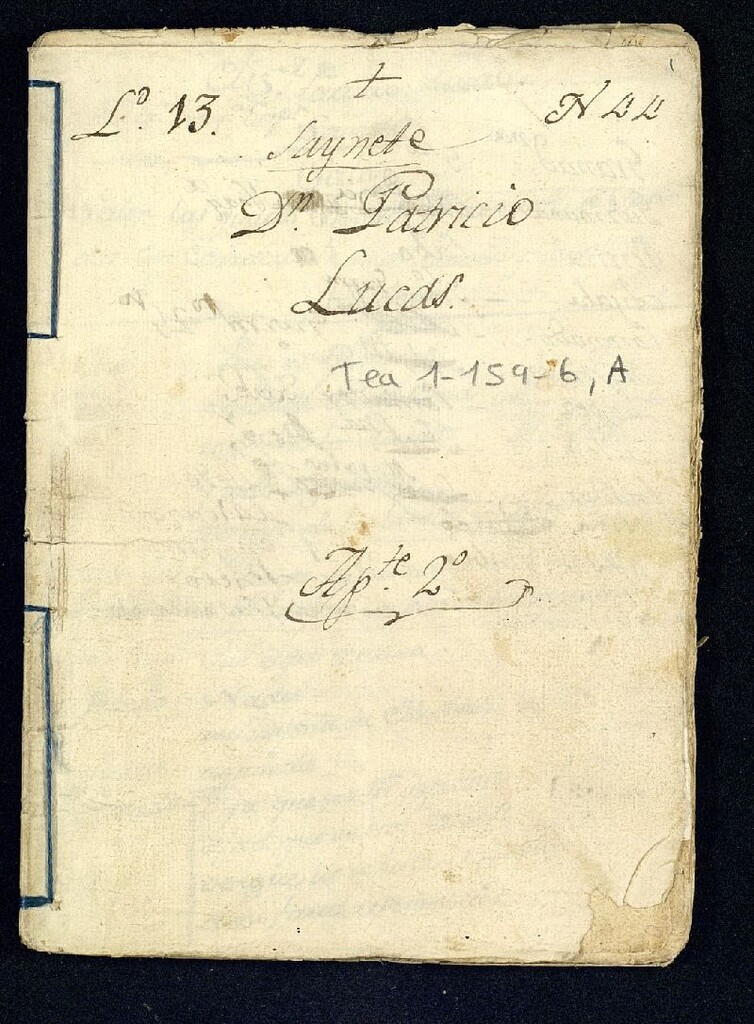 †
Lº. 13. N 44
Saynete
Dn. Patricio
Lucas.
Tea 1-159-6, A
Apte. 2º